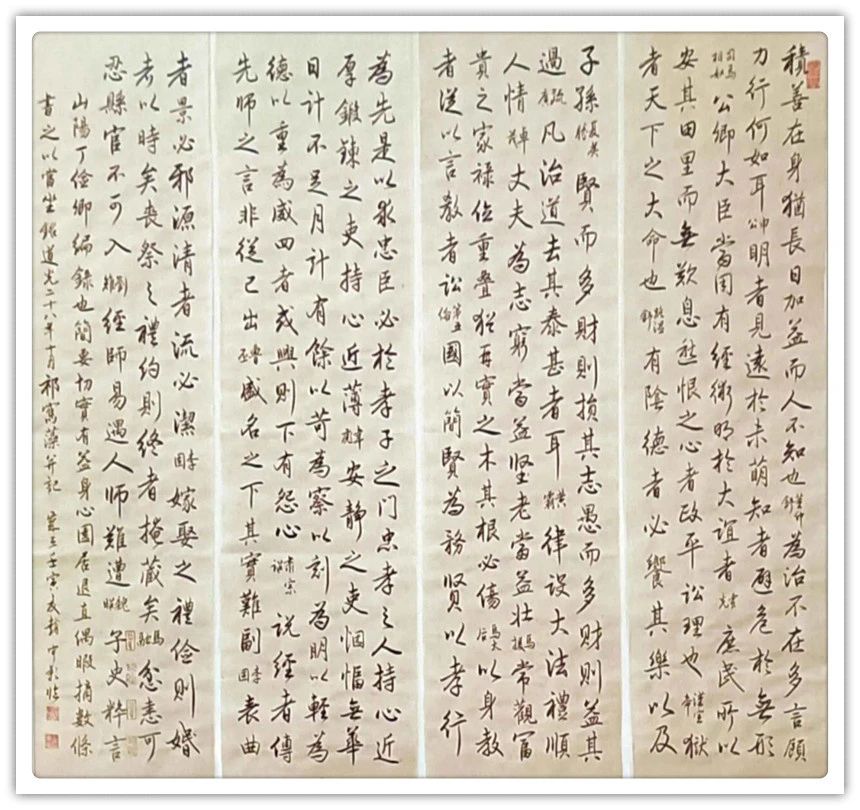 積善在身猶長日加益而人不知也董仲舒為治不在多言顧
力行何如耳申公明者見遠於未萌知者避危於無形
司馬相如公卿大臣當用有經術明於大誼者霍光庶民所以
安其田里而無歎息愁恨之心者政平訟理也漢宣帝獄
者天下之大命也路溫舒有陰德者必饗其樂以及
子孫夏侯勝賢而多財則損其志愚而多財則益其
過疏廣凡治道去其泰甚者耳黃霸律設大法禮順
人情卓茂丈夫為志窮當益堅老當益壯馬援常觀富
貴之家祿位重疊猶再實之木其根必傷以身教
者從以言教者訟第五倫國以簡賢為務賢以孝行
為先是以求忠臣必於孝子之門忠孝之人持心近
厚鍛鍊之吏持心近薄韋彪安靜之吏悃愊無華
日計不足月計有餘以苛為察以刻為明以輕為
德以重為威四者或興則下有怨心肅宗詔說經者傳
先師之言非從己出魯丕盛名之下其實難副李固表曲
者景必邪源清者流必潔李固嫁娶之禮儉則婚
者以時矣喪祭之禮約則終者掩藏矣馬融忿恚可
忍縣官不可入劉矩經師易遇人師難遭魏昭子史粹言
山陽丁儉卿編錄也簡要切實有益身心園居退直偶暇摘數條
書之以當坐銘道光二十八年十月祁寯藻并記歲在壬寅